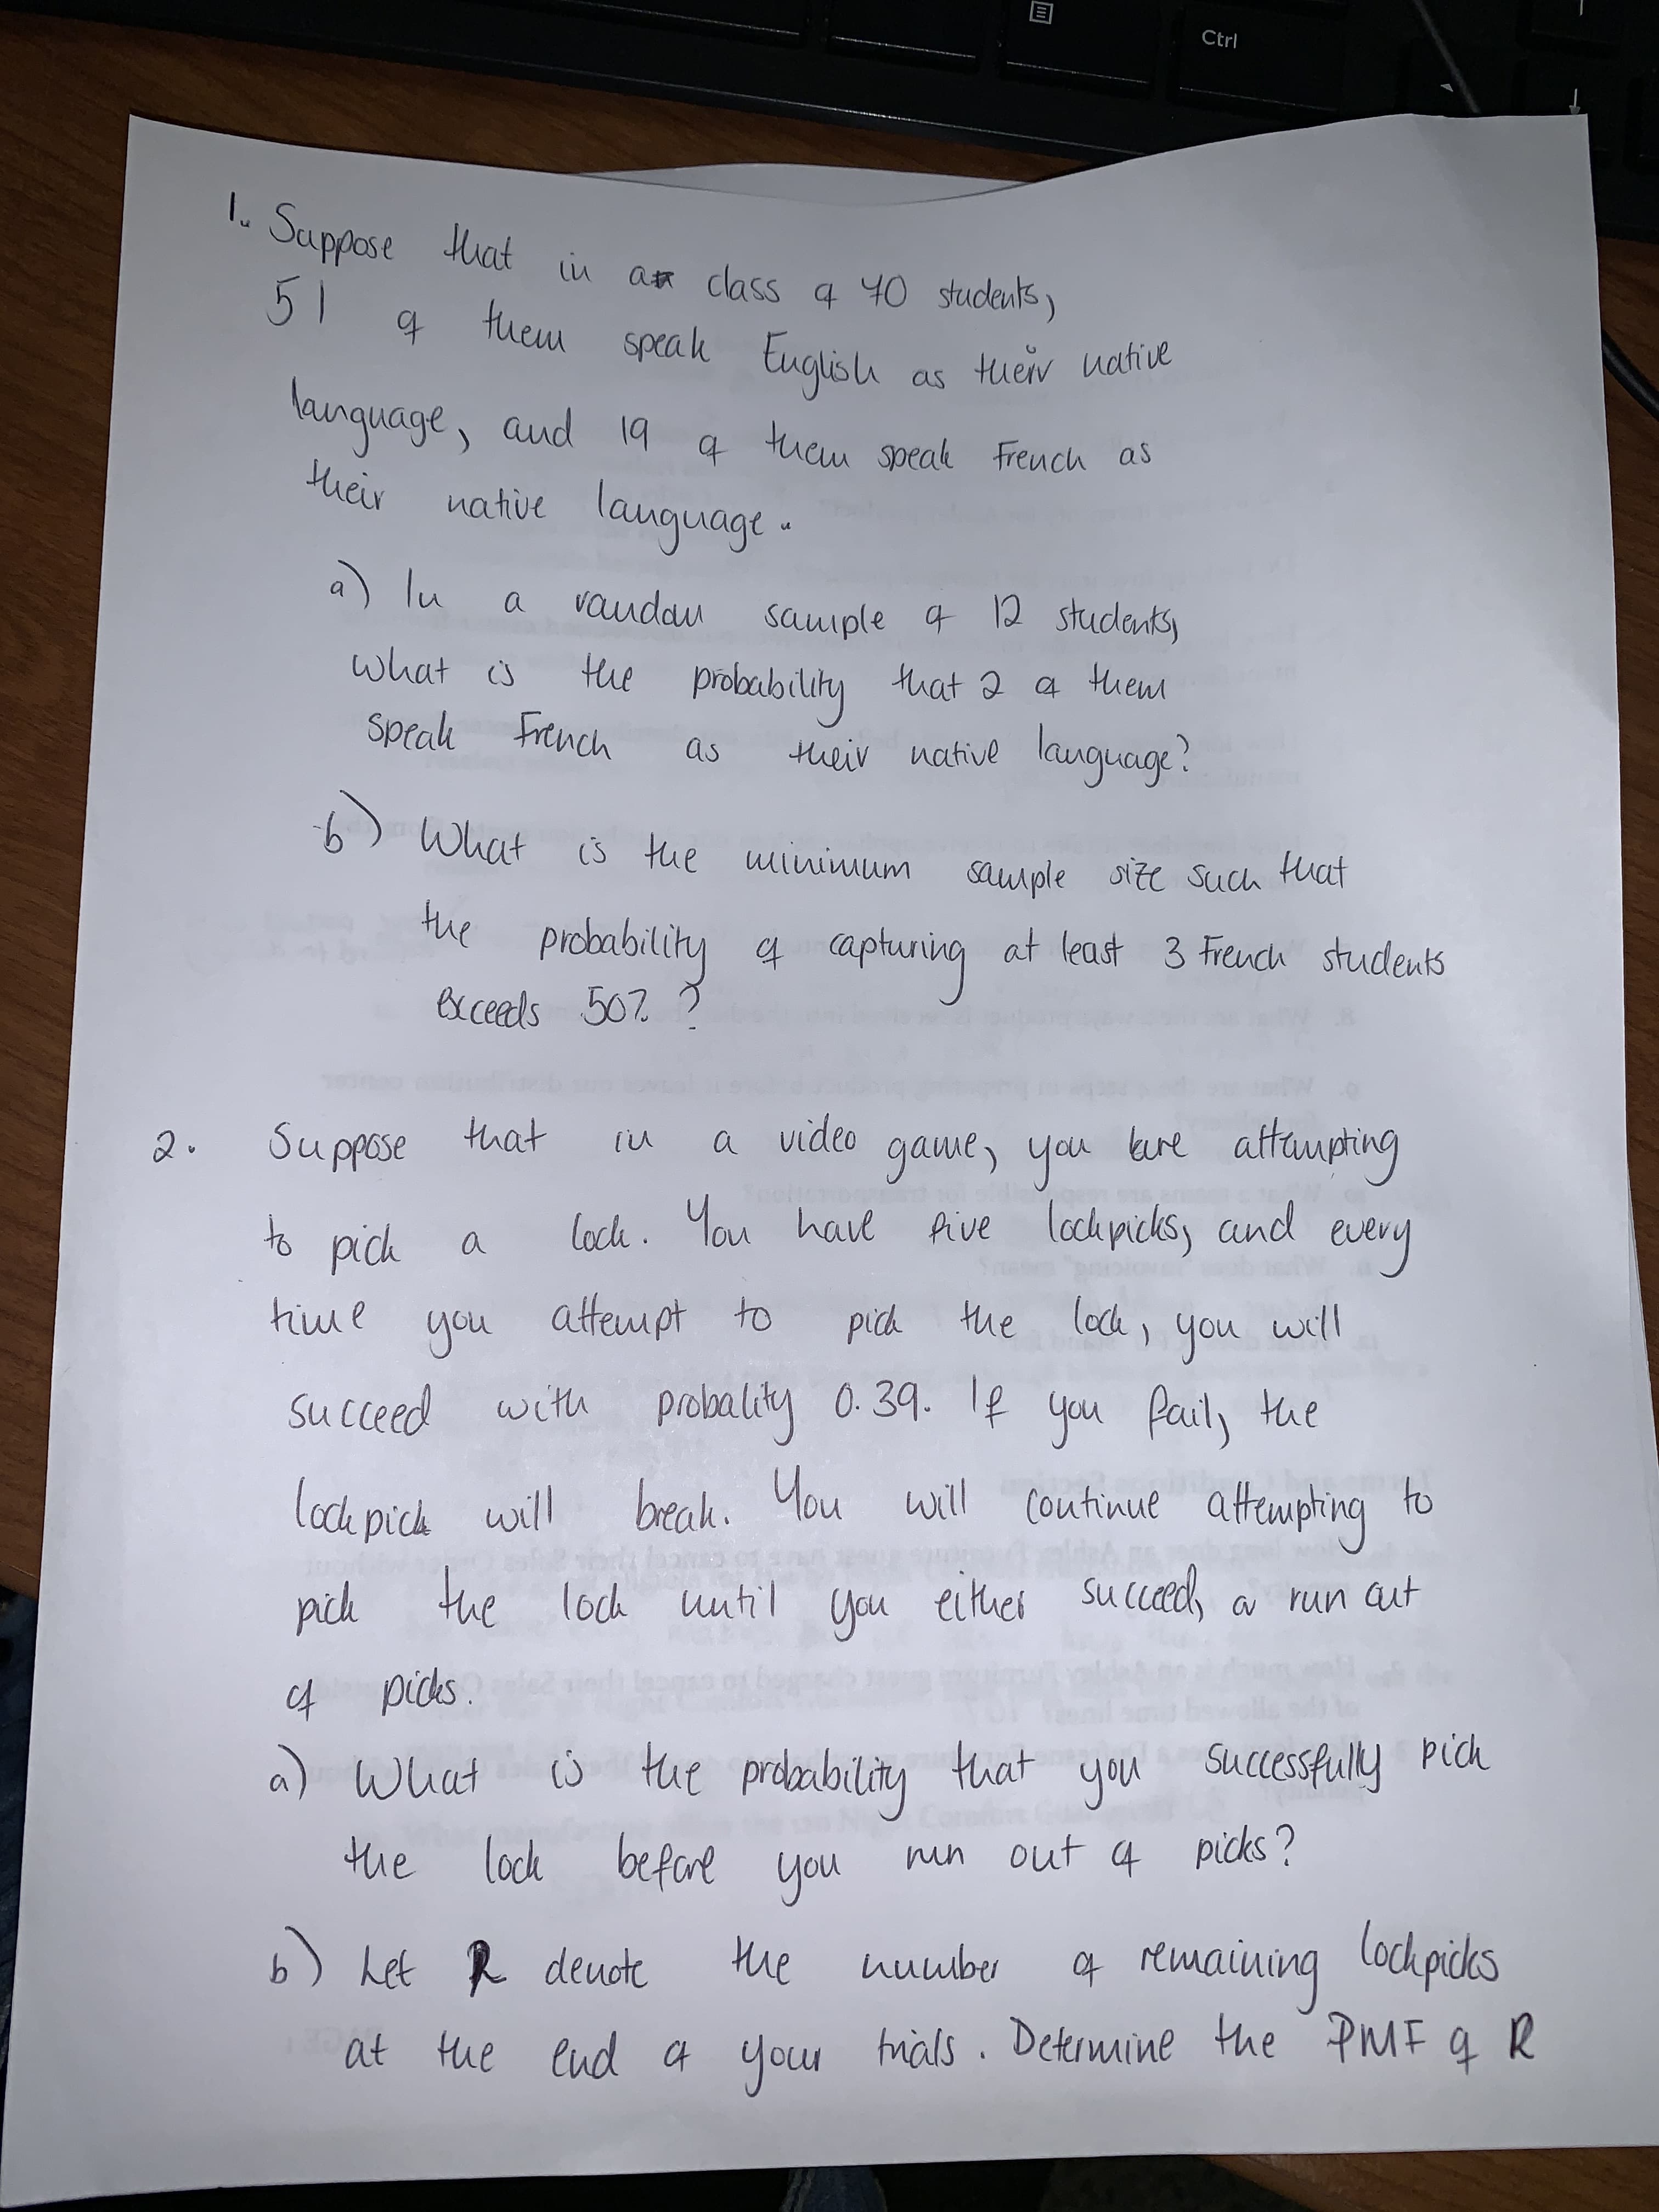 Ctrl
1. Suppose that in a class of 70 students,
51 of them speak English as their native
language, and 19 of them speak French as
their native language.
a) In a random sample of 12 students,
what is the probability that 2 of them
speak French as their native language?
b) What is the minimum sample size such that
the probability of capturing at least 3 French students
exceeds 50%?
2. Suppose that in a video game, you are attempting
to pick a lock. You have five lockpicks, and every
time you attempt to pick the lock, you will
succeed with probality 0.39. If you fail, the
lockpick will break. You will continue attempting to
pick the lock until you either succeed, or run out
of picks.
a) What is the probability that you successfully pick
the lock before you run out of picks?
b) Let R denote the number of remaining lockpicks
at the end of your trials. Determine the PMF of R